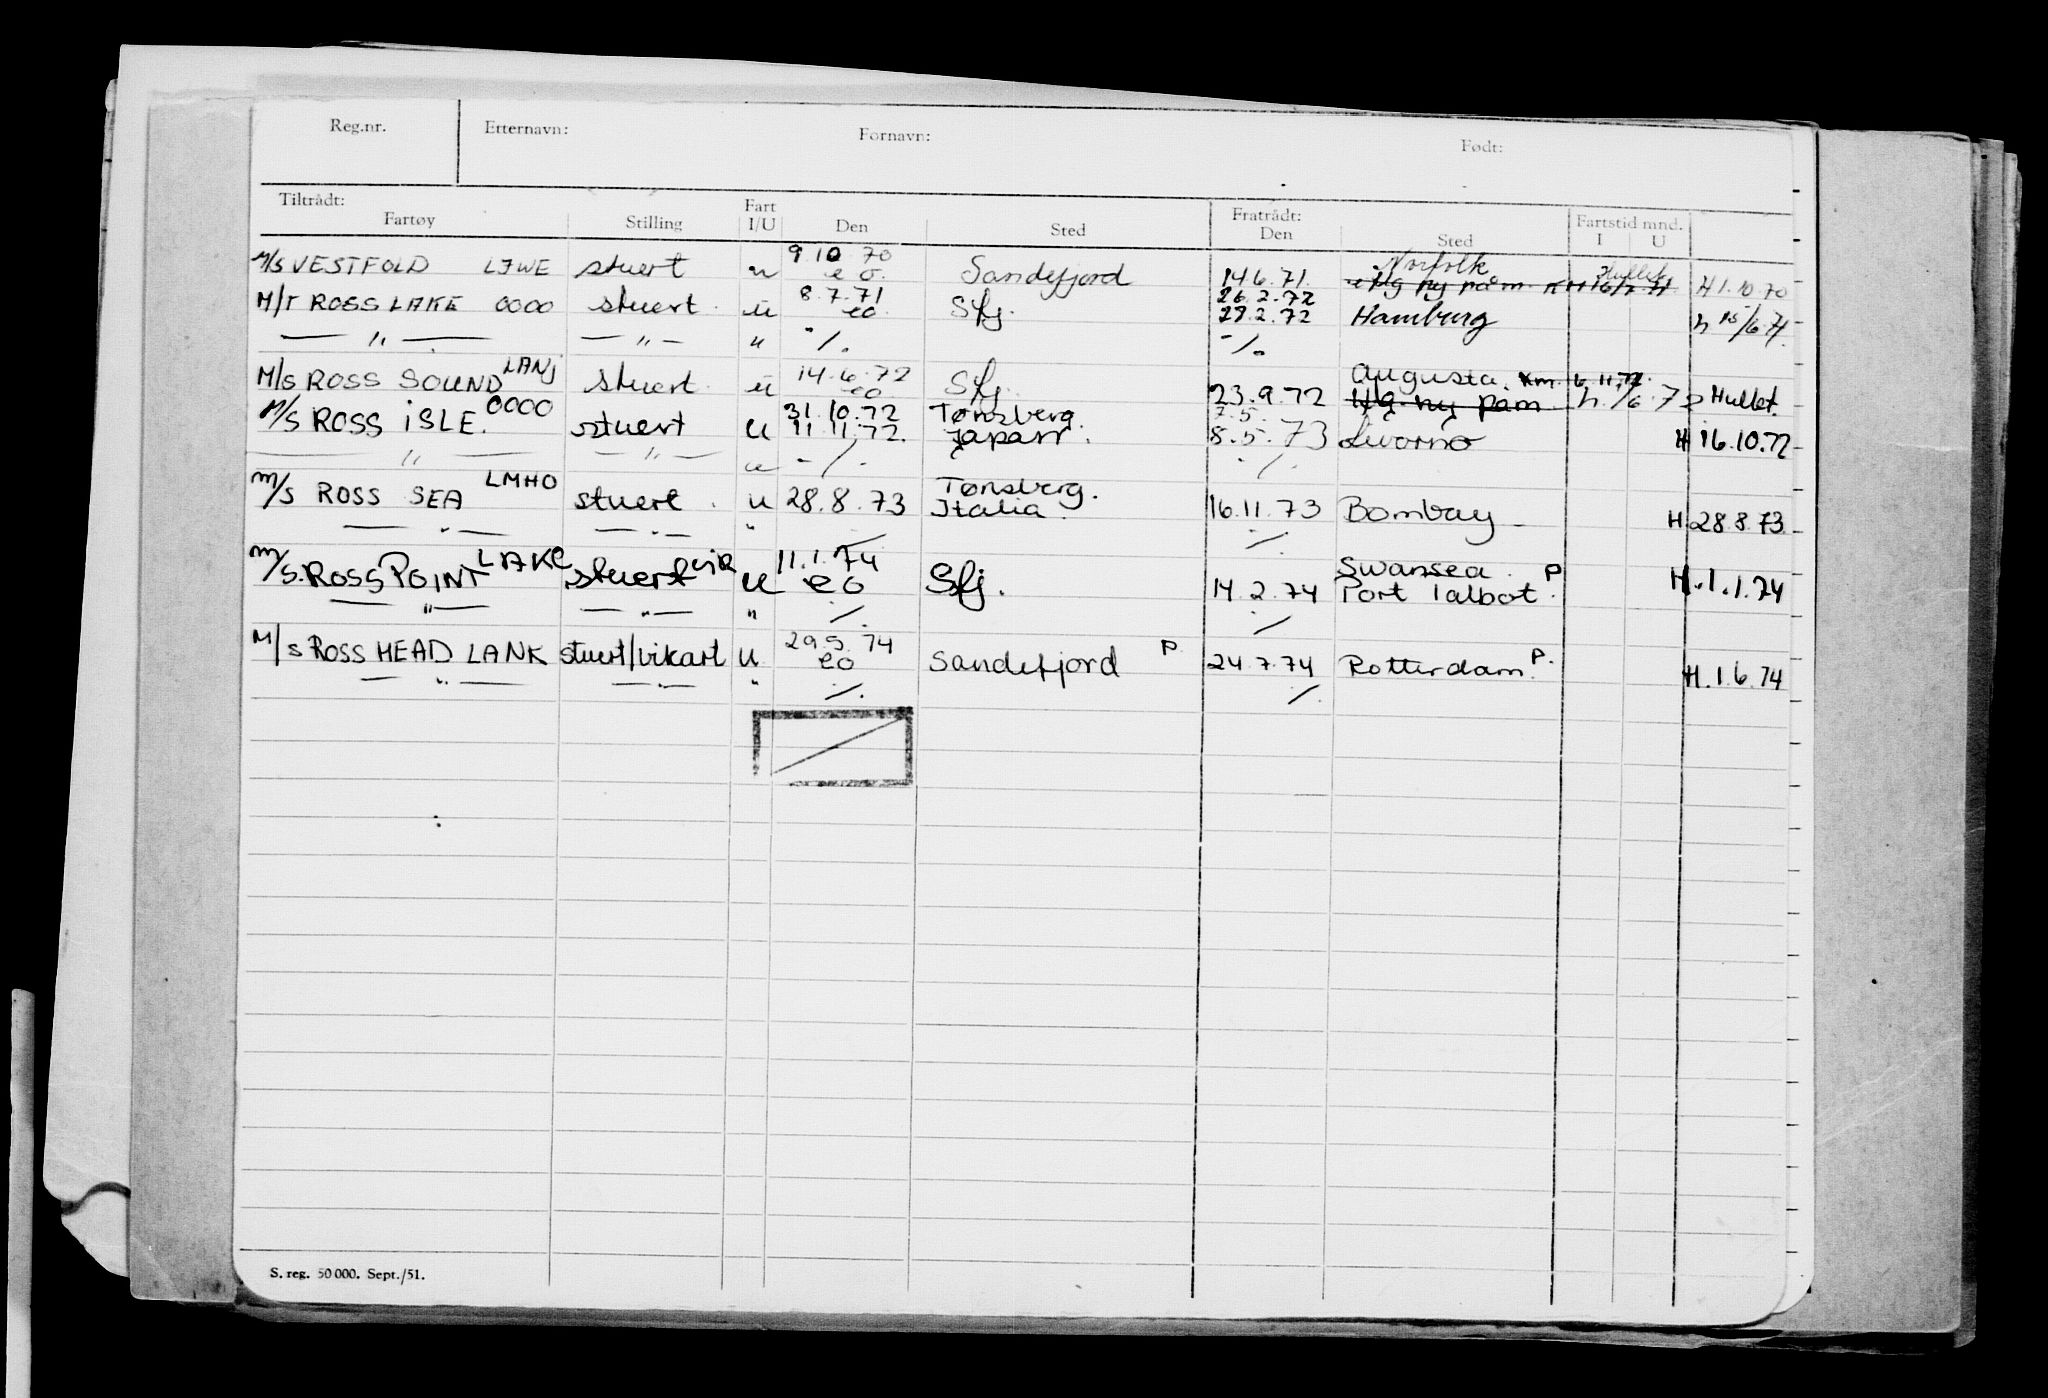 Reg.nr. Etternavn: Fornavn: Født:
Tiltrådt: Fart Fratrådt: Fartstid mnd.
Fartøy Stilling I/U Den Sted Den Sted I U
9.10.70 Norfolk Hullet
M/S VESTFOLD LJWE stuert u e o. Sandefjord 14.6.71. H 1.10.70
8.7.71 26.2.72
M/T ROSS LAKE 0000 stuert. u eo. Sfj. 28.2.72 Hamburg h 15/6.71.
— " — — " — " -/. -/.
LANJ 14.6.72 Augusta. 6.11.72.
M/S ROSS SOUND stuert. u eo Sfj. 23.9.72 Ug. ny påm. h. /6.72 Hullet.
0000 31.10.72 Tønsberg. 7.5.
M/S ROSS ISLE. stuert u 11.11.72. Japan. 8.5.73 Livorno H 16.10.72
— " — — " — u -/. -/.
LMHO Tønsberg.
M/S ROSS SEA stuert. u 28.8.73 Italia. 16.11.73 Bombay H 28.8.73
— " — — " — " / /.
LAKE vik 11.1.74 Swansea. P
M/S. ROSS POINT stuert u eo Sfj. 14.2.74 Port Talbot. H.1.1.74
— " — — " — " /. /
29.5.74
M/S ROSS HEAD LANK stuert/vikart u eo Sandefjord P. 24.7.74 Rotterdam P. H.1.6.74
— " — — " — " /. /.
S. reg. 50 000. Sept./51.